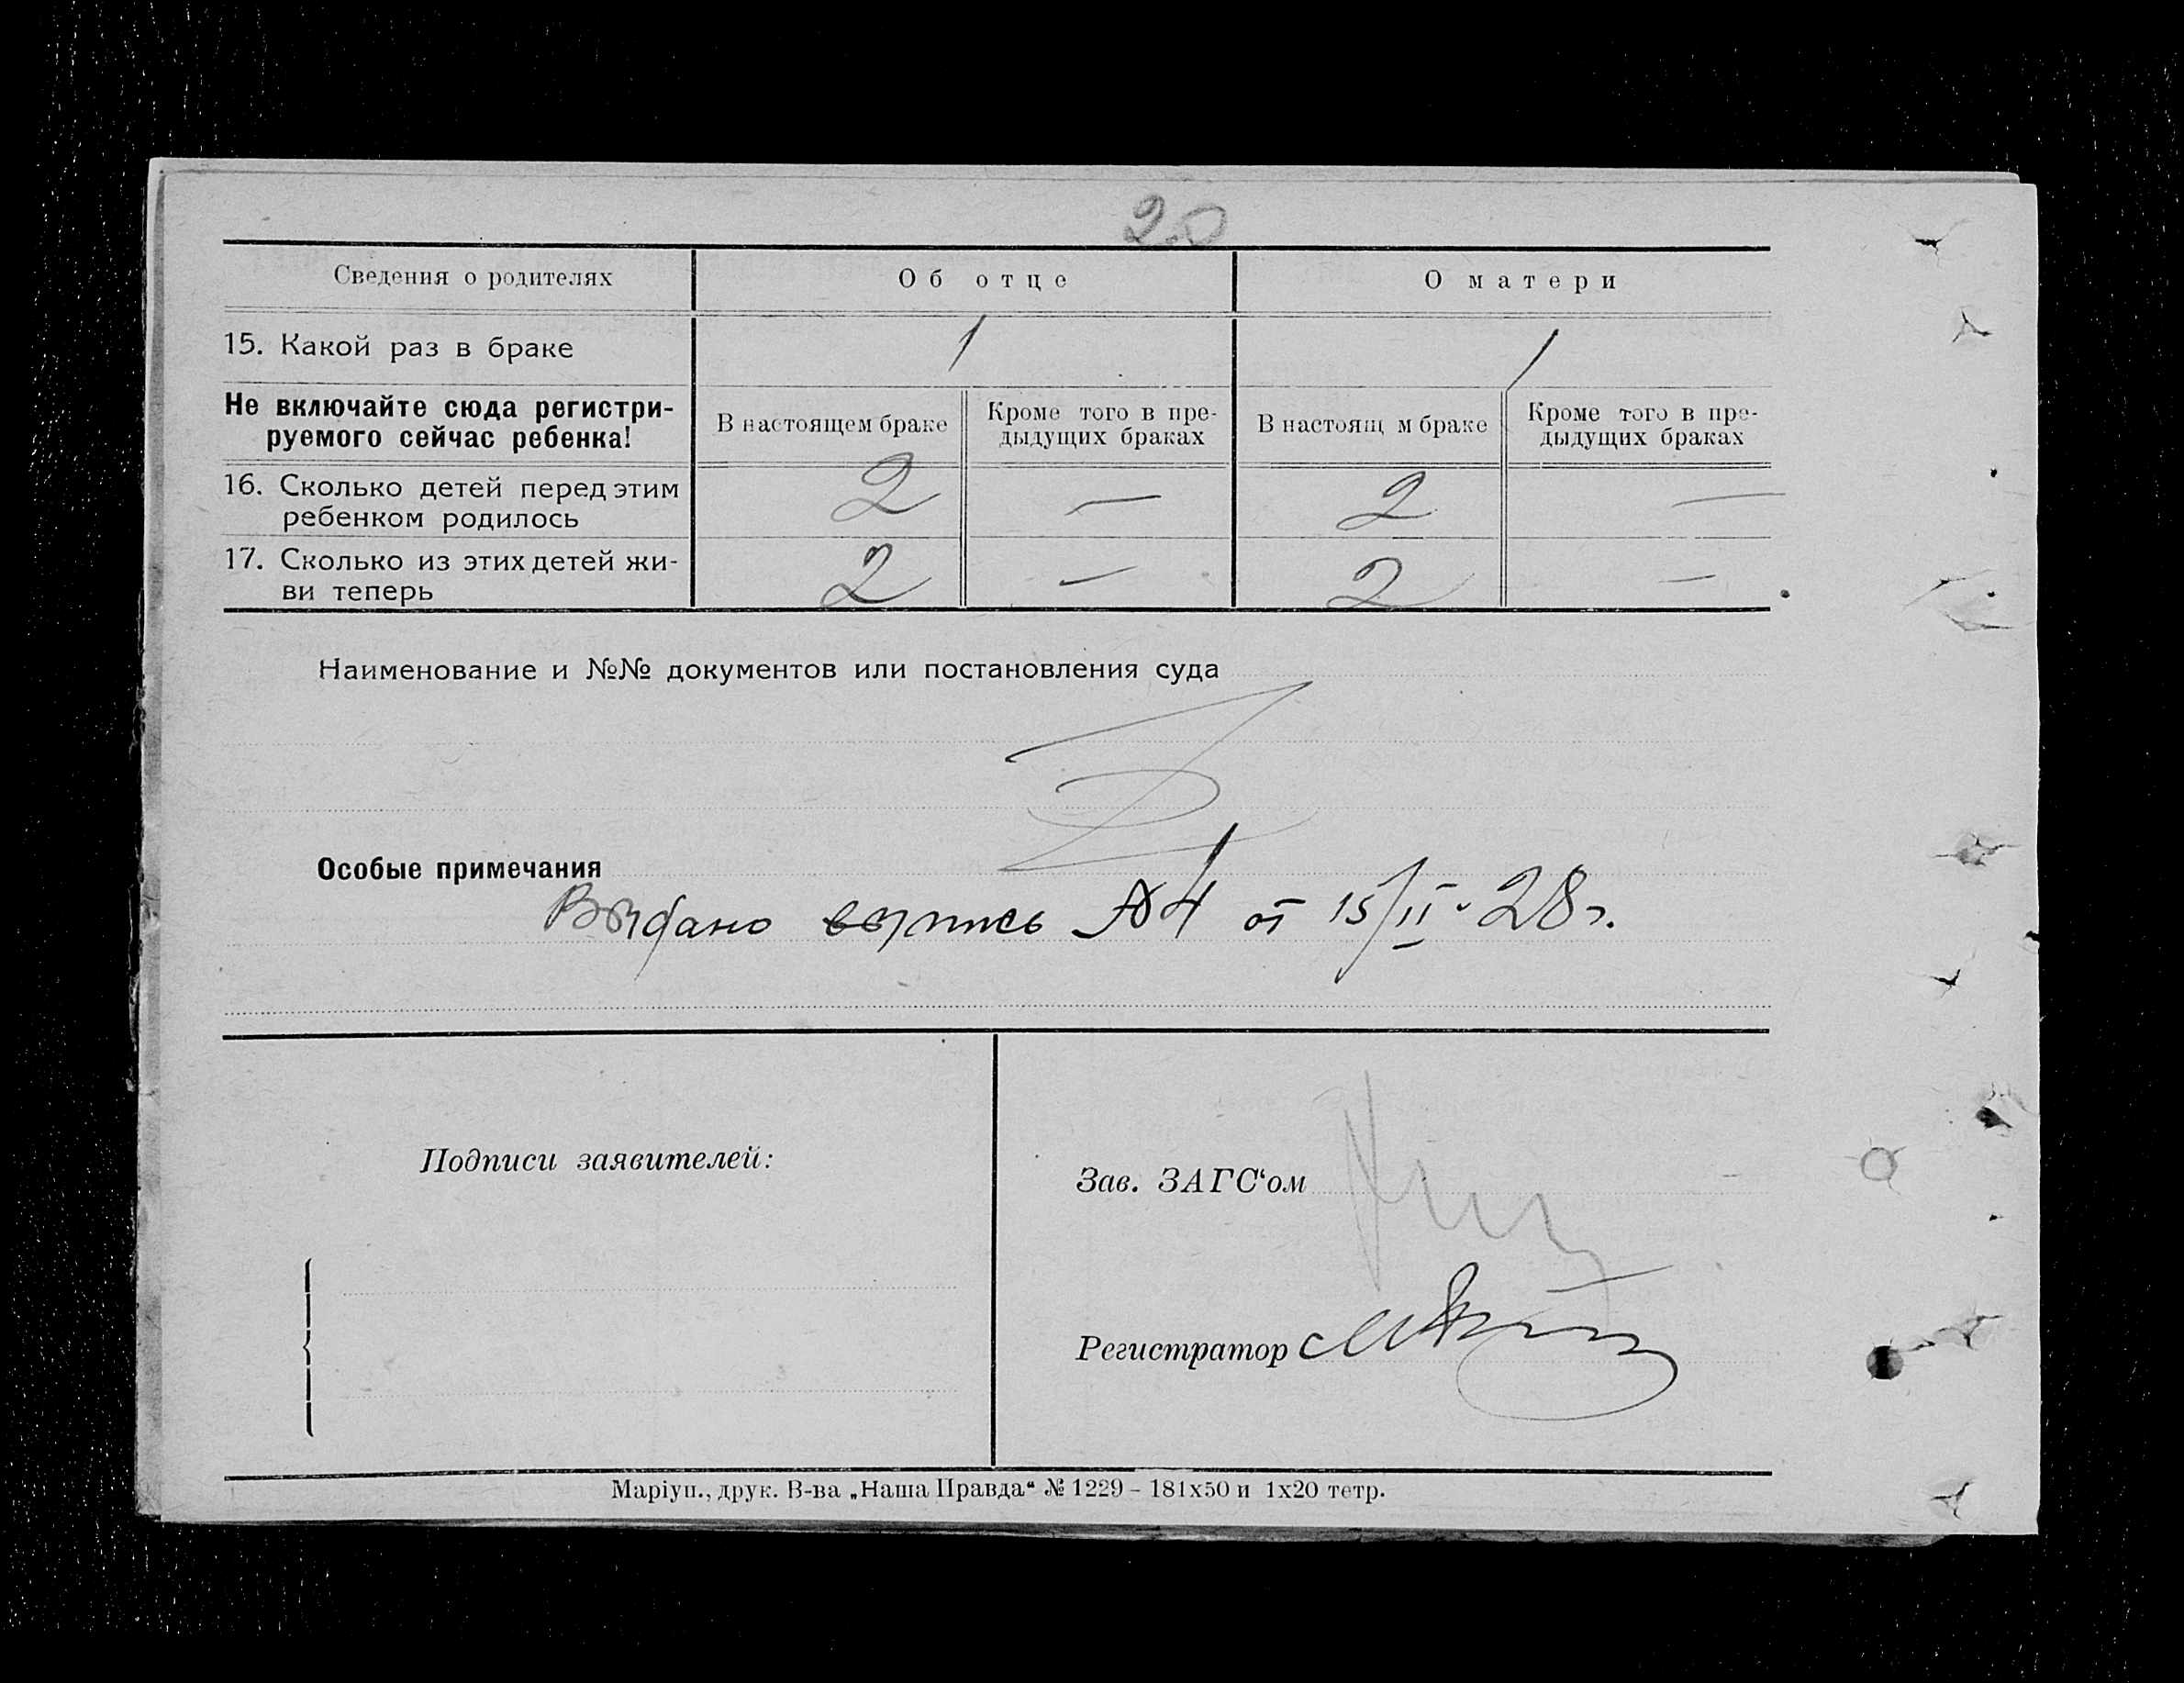 20
Сведения о родителях Об отце О матери
15. Какой раз в браке 1 1
Не включайте сюда регистри-
руемого сейчас ребенка!
В настоящем браке
Кроме того в пре-
дыдущих браках
В настоящ м браке
Кроме того в пре-
дыдущих браках
16. Сколько детей перед этим
ребенком родилось
2 — 2 —
17. Сколько из этих детей жи-
ви теперь
2 — 2 —
Наименование и №№ документов или постановления суда
Особые примечания
Выдано выпись №4 от 15/II-28г.
Подписи заявителей:
Зав. ЗАГС‘ом
Регистратор
Маріуп., друк. В-ва „Наша Правда“ № 1229 – 181х50 и 1х20 тетр.